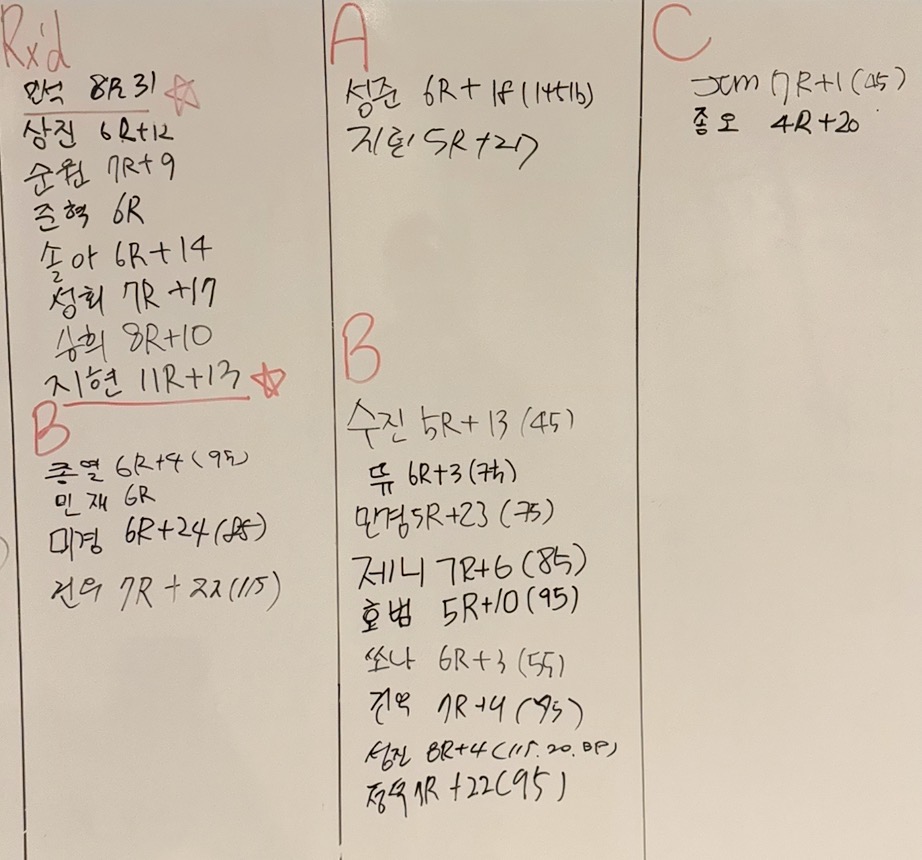 Rx'd
민석 8R 31
상진 6R+12
순원 7R+9
준혁 6R
솔아 6R+14
성회 7R+17
상희 8R+10
지현 11R+13
B
종열 6R+4 (95)
민재 6R
미경 6R+24 (85)
건우 7R+22 (115)
A
성준 6R+18 (145lb)
지환 5R+27
B
수진 5R+13 (45)
뜌 6R+3 (75)
민경 5R+23 (75)
제니 7R+6 (85)
호범 5R+10 (95)
쏘나 6R+3 (55)
7R+4 (95)
성진 8R+4 (115.20.BP)
7R+22 (95)
C
JCM 7R+1 (45)
종오 4R+20